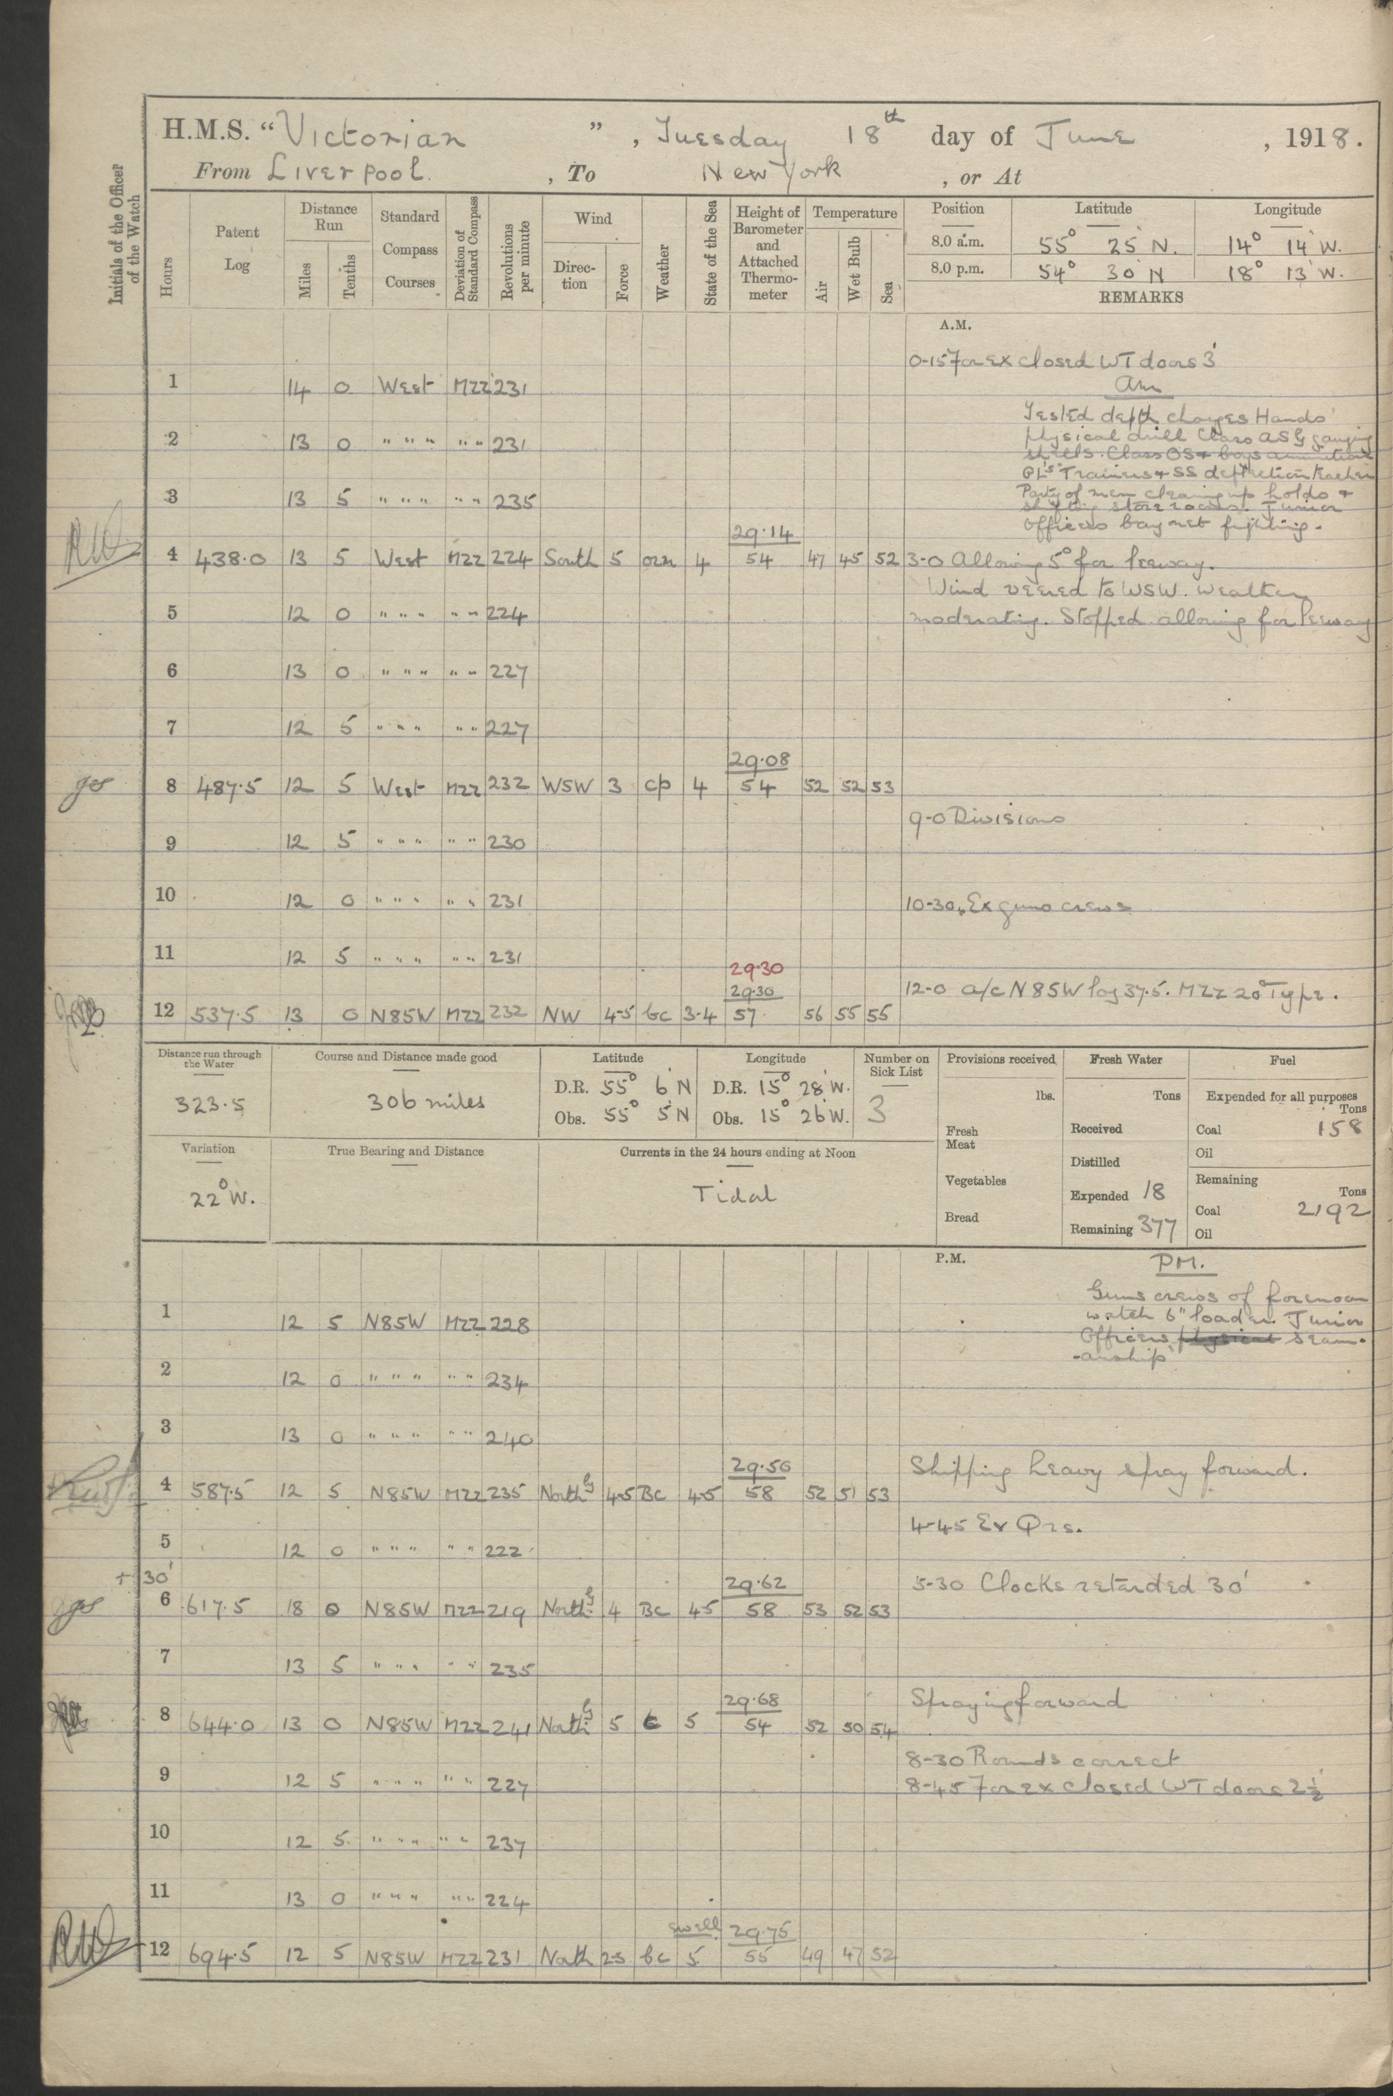 H.M.S. "Victorian", Tuesday 18th day of June, 1918.
From Liverpool. , To New York , or At
Initials of the Officer of the Watch
Hours
Patent Log
Distance Run
Miles
Tenths
Standard Compass Courses
Deviation of Standard Compass
Revolutions per minute
Wind
Direc-tion
Force
Weather
State of the Sea
Height of Barometer and Attached Thermo-meter
Temperature
Air
Wet Bulb
Sea
Position Latitude Longitude
8.0 a.m. 55° 25' N. 14° 14' W.
8.0 p.m. 54° 30' N 18° 13' W.
REMARKS
A.M.
0-15 For Ex closed WT doors 3'
1 14 0 West MZZ 231
Am
Tested depth charges Hands
2 13 0 " " " " " 231
physical drill Class ASG gauging
shells. Class OS & boys
GL's Trainers & SS deflection teacher
3 13 5 " " " " " 235
Party of men cleaning up holds &
shifting store rooms. Junior
Officers bayonet fighting.
29.14
4 438.0 13 5 West MZZ 224 South 5 ozr 4 54 47 45 52 3-0 Allowing 5° for leeway.
Wind veered to WSW. Weather
5 12 0 " " " " " 224 moderating. Stopped allowing for leeway
6 13 0 " " " " " 227
7 12 5 " " " " " 227
29.08
8 487.5 12 5 West MZZ 232 WSW 3 cp 4 54 52 52 53
9-0 Divisions
9 12 5 " " " " " 230
10 12 0 " " " " " 231 10-30 Ex guns crews
11 12 5 " " " " " 231
29.30
29.30
12-0 a/c N85W log 37.5. MZZ 20° Type.
12 537.5 13 0 N85W MZZ 232 NW 4-5 bc 3-4 57 56 55 55
Distance run through the Water
323.5
Course and Distance made good
306 miles
Latitude
D.R. 55° 6' N
Obs. 55° 5' N
Longitude
D.R. 15° 28' W.
Obs. 15° 26' W.
Number on Sick List
3
Provisions received
lbs.
Fresh Meat
Vegetables
Bread
Fresh Water
Tons
Received
Distilled
Expended 18
Remaining 377
Fuel
Expended for all purposes
Tons
Coal 158
Oil
Remaining
Tons
Coal 2192
Oil
Variation
22° W.
True Bearing and Distance
Currents in the 24 hours ending at Noon
Tidal
P.M.
PM.
Guns crews of forenoon
1 12 5 N85W MZZ 228
watch 6" loader. Junior
Officers physical seam-
-anship
2 12 0 " " " " " 234
3 13 0 " " " " " 240
29.50
Shipping heavy spray forward.
4 587.5 12 5 N85W MZZ 235 North'y 4-5 BC 4-5 58 52 51 53
4-45 Ex Qrs.
5 12 0 " " " " " 222
+ 30'
29.62
5-30 Clocks retarded 30'
6 617.5 18 0 N85W MZZ 219 North'y 4 BC 45 58 53 52 53
7 13 5 " " " " " 235
29.68
Spraying forward
8 644.0 13 0 N85W MZZ 241 North'y 5 c 5 54 52 50 54
8-30 Rounds correct
9 12 5 " " " " " 227
8-45 For ex closed WT doors 2½'
10 12 5 " " " " " 237
11 13 0 " " " " " 224
swell 29.75
12 694.5 12 5 N85W MZZ 231 North 23 bc 5 55 49 47 52